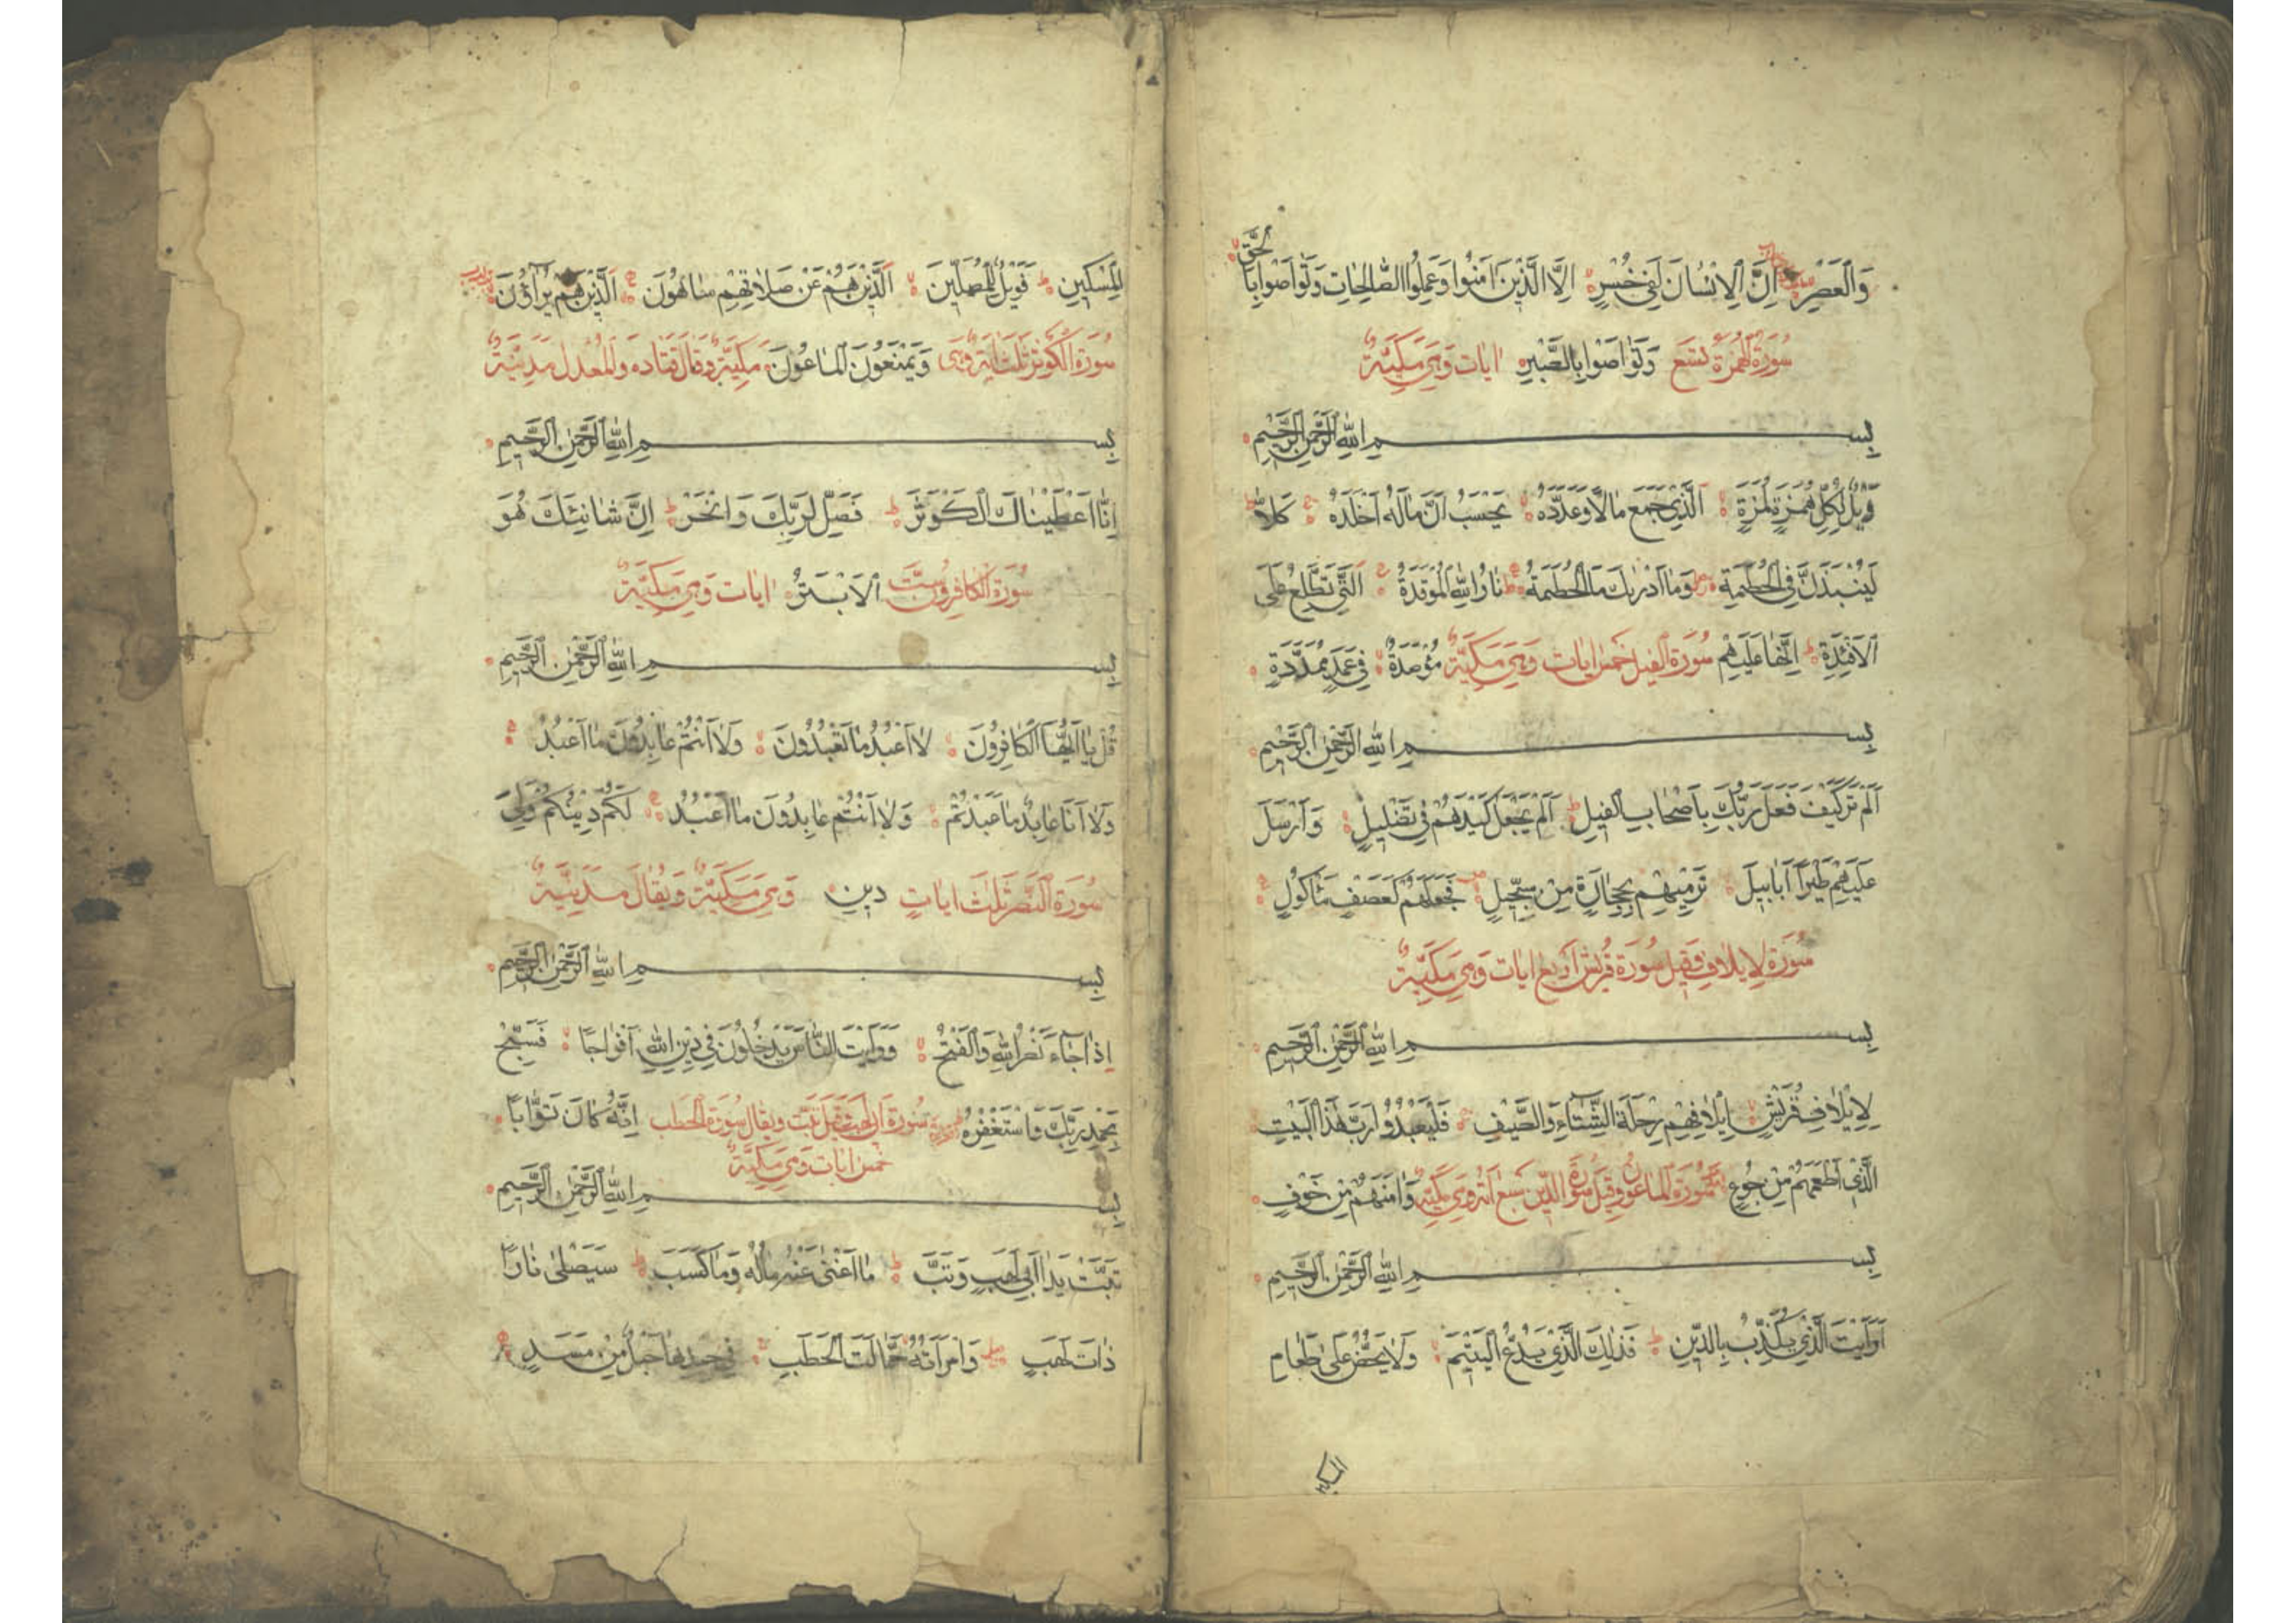 وَالْعَصْرِ اِنَّ الْاِنْسَانَ لَفِي خُسْرٍ اِلَّا الَّذِينَ اٰمَنُوا وَعَمِلُوا الصَّالِحَاتِ وَتَوَاصَوْا بِالْحَقِّ
سُورَةُ الْهُمَزَةِ تِسْعُ وَتَوَاصَوْا بِالصَّبْرِ اٰيَات وَهِيَ مَكِّيَّةٌ
بِسْمِ اللّٰهِ الرَّحْمٰنِ الرَّحِيمِ
وَيْلٌ لِكُلِّ هُمَزَةٍ لُمَزَةٍ اَلَّذِي جَمَعَ مَالًا وَعَدَّدَهُ يَحْسَبُ اَنَّ مَالَهُ اَخْلَدَهُ كَلَّا
لَيُنْبَذَنَّ فِي الْحُطَمَةِ وَمَا اَدْرٰيكَ مَا الْحُطَمَةُ نَارُ اللّٰهِ الْمُوقَدَةُ اَلَّتِي تَطَّلِعُ عَلَى
الْاَفْئِدَةِ اِنَّهَا عَلَيْهِمْ سُورَةُ الْفِيل خَمْسُ اٰيَات وَهِيَ مَكِّيَّةٌ مُؤْصَدَةٌ فِي عَمَدٍ مُمَدَّدَةٍ
بِسْمِ اللّٰهِ الرَّحْمٰنِ الرَّحِيمِ
اَلَمْ تَرَ كَيْفَ فَعَلَ رَبُّكَ بِاَصْحَابِ الْفِيلِ اَلَمْ يَجْعَلْ كَيْدَهُمْ فِي تَضْلِيلٍ وَاَرْسَلَ
عَلَيْهِمْ طَيْرًا اَبَابِيلَ تَرْمِيهِمْ بِحِجَارَةٍ مِنْ سِجِّيلٍ فَجَعَلَهُمْ كَعَصْفٍ مَأْكُولٍ
سُورَةُ لِاِيلَافِ وَقِيلَ سُورَةُ قُرَيْش اَرْبَع اٰيَات وَهِيَ مَكِّيَّةٌ
بِسْمِ اللّٰهِ الرَّحْمٰنِ الرَّحِيمِ
لِاِيلَافِ قُرَيْشٍ اِيلَافِهِمْ رِحْلَةَ الشِّتَاءِ وَالصَّيْفِ فَلْيَعْبُدُوا رَبَّ هٰذَا الْبَيْتِ
الَّذِي اَطْعَمَهُمْ مِنْ جُوعٍ سُورَةُ الْمَاعُون وَقِيلَ سُورَةُ الدِّين سَبْع وَهِيَ مَكِّيَّةٌ وَاٰمَنَهُمْ مِنْ خَوْفٍ
بِسْمِ اللّٰهِ الرَّحْمٰنِ الرَّحِيمِ
اَرَاَيْتَ الَّذِي يُكَذِّبُ بِالدِّينِ فَذٰلِكَ الَّذِي يَدُعُّ الْيَتِيمَ وَلَا يَحُضُّ عَلَى طَعَامِ
الْمِسْكِينِ فَوَيْلٌ لِلْمُصَلِّينَ اَلَّذِينَ هُمْ عَنْ صَلَاتِهِمْ سَاهُونَ اَلَّذِينَ هُمْ يُرَآؤُنَ
سُورَةُ الْكَوْثَرِ ثَلٰث اٰيَة وَهِيَ وَيَمْنَعُونَ الْمَاعُونَ مَكِّيَّةٌ وَقَالَ قَتَادَه وَالْمُعَدَّل مَدَنِيَّةٌ
بِسْمِ اللّٰهِ الرَّحْمٰنِ الرَّحِيمِ
اِنَّا اَعْطَيْنَاكَ الْكَوْثَرَ فَصَلِّ لِرَبِّكَ وَانْحَرْ اِنَّ شَانِئَكَ هُوَ
سُورَةُ الْكَافِرُونَ سِتّ الْاَبْتَرُ اٰيَات وَهِيَ مَكِّيَّةٌ
بِسْمِ اللّٰهِ الرَّحْمٰنِ الرَّحِيمِ
قُلْ يَا اَيُّهَا الْكَافِرُونَ لَا اَعْبُدُ مَا تَعْبُدُونَ وَلَا اَنْتُمْ عَابِدُونَ مَا اَعْبُدُ
وَلَا اَنَا عَابِدٌ مَا عَبَدْتُمْ وَلَا اَنْتُمْ عَابِدُونَ مَا اَعْبُدُ لَكُمْ دِينُكُمْ وَلِيَ
سُورَةُ النَّصْرِ ثَلٰثُ اٰيَاتٍ دِينِ وَهِيَ مَكِّيَّةٌ وَيُقَالُ مَدَنِيَّةٌ
بِسْمِ اللّٰهِ الرَّحْمٰنِ الرَّحِيمِ
اِذَا جَاءَ نَصْرُ اللّٰهِ وَالْفَتْحُ وَرَاَيْتَ النَّاسَ يَدْخُلُونَ فِي دِينِ اللّٰهِ اَفْوَاجًا فَسَبِّحْ
بِحَمْدِ رَبِّكَ وَاسْتَغْفِرْهُ سُورَةُ اَبِي لَهَب وَقِيلَ تَبَّت وَيُقَالُ سُورَةُ الْحَطَب اِنَّهُ كَانَ تَوَّابًا
خَمْسُ اٰيَات وَهِيَ مَكِّيَّةٌ
بِسْمِ اللّٰهِ الرَّحْمٰنِ الرَّحِيمِ
تَبَّتْ يَدَا اَبِي لَهَبٍ وَتَبَّ مَا اَغْنٰى عَنْهُ مَالُهُ وَمَا كَسَبَ سَيَصْلٰى نَارًا
ذَاتَ لَهَبٍ وَامْرَاَتُهُ حَمَّالَتَ الْحَطَبِ فِي جِيدِهَا حَبْلٌ مِنْ مَسَدٍ